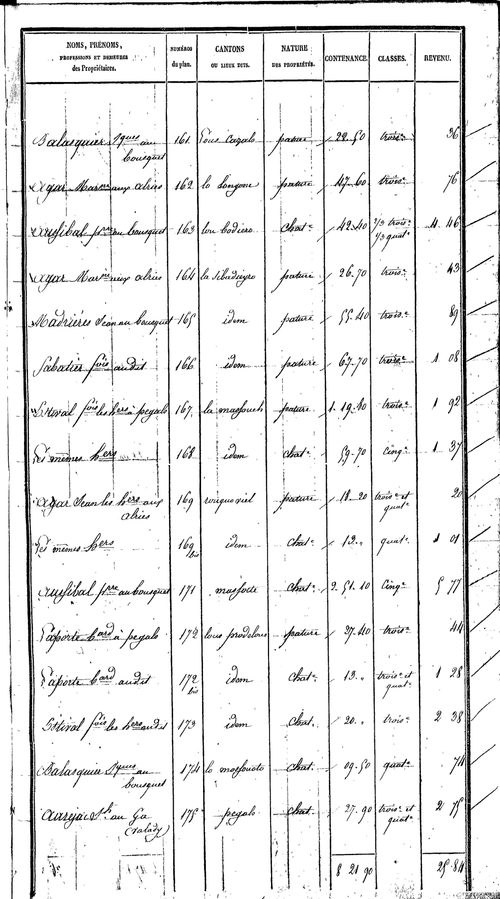 NOMS, PRÉNOMS, PROFESSIONS ET DEMEURES des Propriétaires. NUMÉROS du plan. CANTONS OU LIEUX DITS. NATURE DES PROPRIÉTÉS. CONTENANCE. CLASSES. REVENU.
Balasquier Jques au bousquet 161 Lous Cazals pature 22.50 trois.e 36
Agar Mar.ne aux alriés 162 la Longono pature 47.60 trois.e 76
aussibal p.rre au bousquet 163 lou bodiero chat.e 42.40 2/3 trois.e 1/3 quat.e 4 46
Agar Mar.ne aux alriés 164 la pature 26.70 trois.e 43
Madriéres Jean au bousquet 165 idem pature 55.40 trois.e 89
Sabatier fois audit 166 idem pature 67.70 trois.e 1 08
Estival fois les hers a pegalo 167 la massouch pature 1.19.10 trois.e 1 92
Les mêmes hers 168 idem chat.e 59.70 Cinq.e 1 37
agar Jean les hers aux alriés 169 pature 18.20 trois.e et quat.e 20
Les mêmes hers 169 bis idem chat.e 13.. quat.e 1 01
aussibal p.rre au bousquet 171 massotte chat.e 2.51.10 Cinq.e 5 77
Laporte b.ard a pegalo 172 lous prodelous pature 27.40 trois.e 44
Laporte b.ard audit 172 bis idem chat.e 13.. trois.e et quat.e 1 28
Estival fois les hers audit 173 idem chat. 20.. trois.e 2 38
Balasquier Jques au bousquet 174 la massouto chat. 09.50 quat.e 74
au Ga (valady) 175 pegalo chat. 27.90 trois.e et quat.e 2 75
8 21 90 25.84